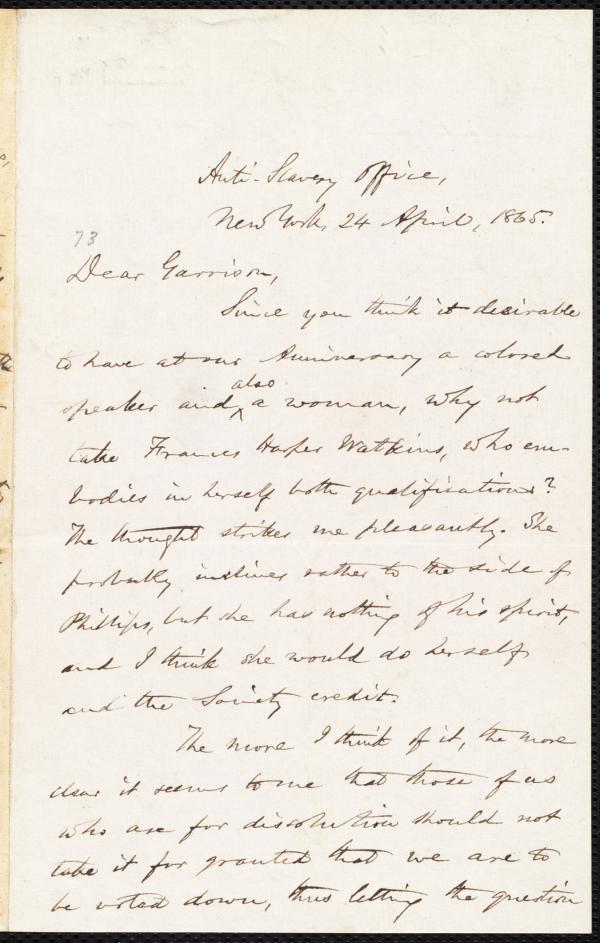 Anti-Slavery Office,
New York, 24 April, 1865.
73
Dear Garrison,
Since you think it desirable
to have at our Anniversary a colored
also
speaker and ^ a woman, why not
take Frances Harper Watkins, who em-
bodies in herself both qualifications?
The thought strikes me pleasantly. She
probably inclines rather to the side of
Phillips, but she has nothing of his spirit,
and I think she would do herself
and the Society credit.
The more I think of it, the more
clear it seems to me that those of us
who are for dissolution should not
take it for granted that we are to
be voted down, thus letting the question